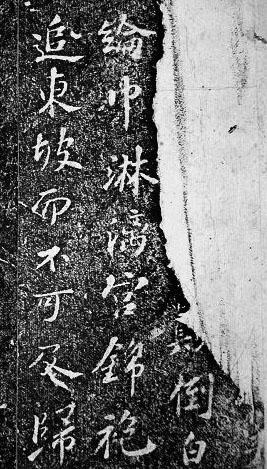 倒白
綸巾淋漓宮錦袍
追東坡而不可及歸